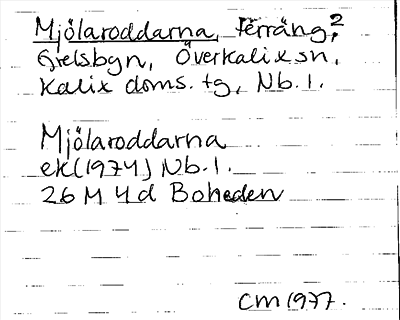 Mjölaroddarna, Terräng,²
Grelsbyn, Överkalix sn,
Kalix doms. tg, Nb. l.
Mjölaroddarna
ek (1974) Nb. l.
26 M 4 d Boheden
CM 1977.